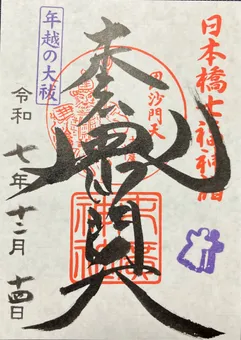 日本橋七福神詣
毘沙門天
年越の大祓
令和七年十二月十四日
末廣神社